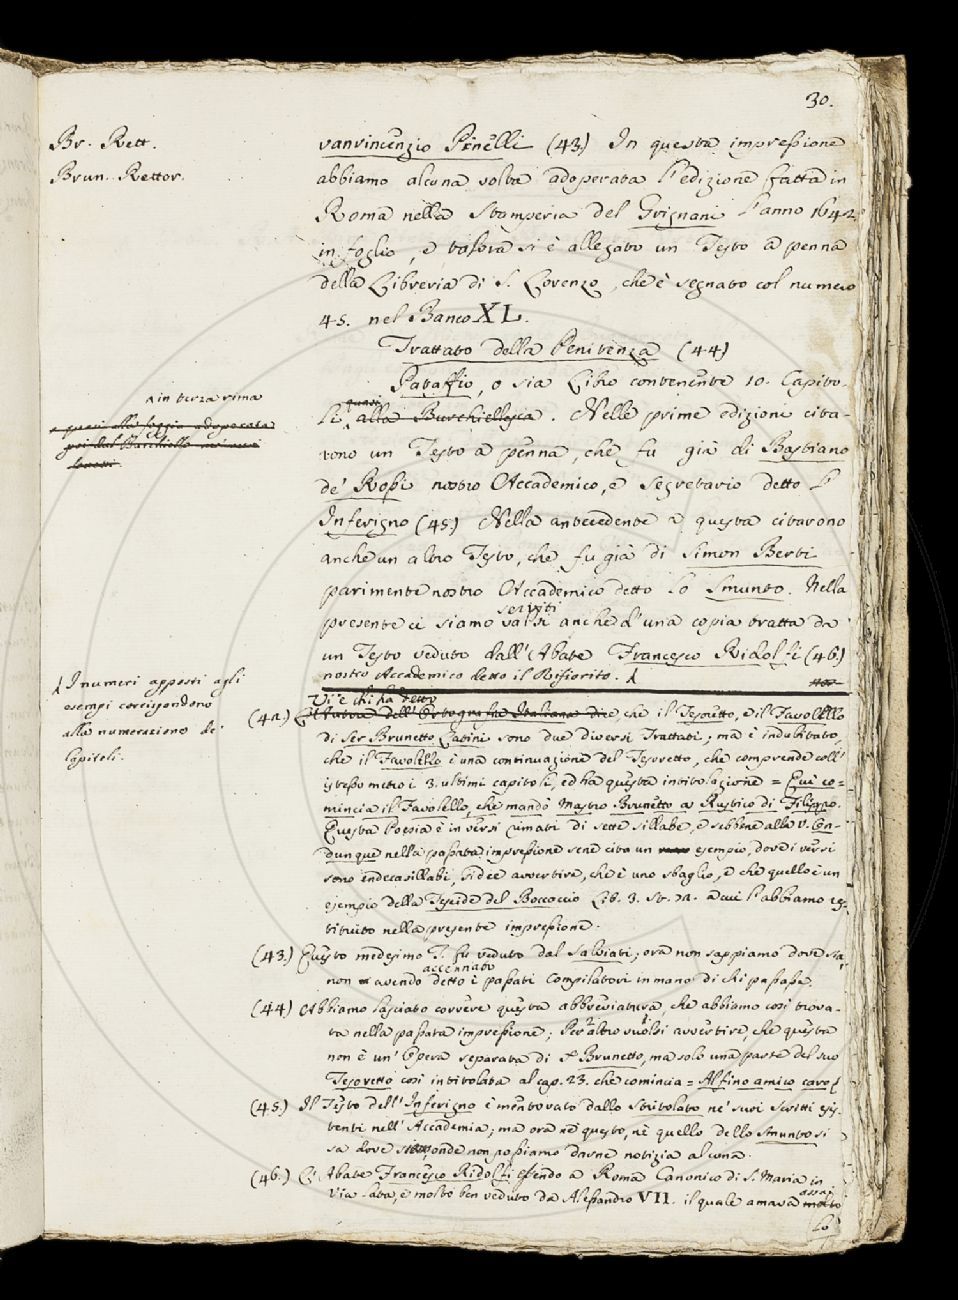 30.
Br. Rett.
Brun. Rettor.
vanvincenzio Pinelli (43.) In questa impressione
abbiamo alcuna volta adoperata l'edizione fatta in
Roma nella Stamperia del Grignani l'anno 1642
in foglio, e talora si è allegato un Testo a penna
della Libreria di S. Lorenzo, che è segnato col numero
45. nel Banco XL.
Trattato della Penitenza (44)
Pataffio, o sia Libro contenente 10. Capito-
li quasi alla Burchiellesca. Nelle prime edizioni cita-
∧ in terza rima
e quasi alla foggia adoperata
poi dal Burchiello ne' suoi
Sonetti
rono un Testo a penna, che fu già di Bastiano
de' Rossi nostro Accademico, e Segretario detto l'
Inferigno (45.) Nella antecedente a questa citarono
anche un altro Testo, che fu già di Simon Berti
parimente nostro Accademico detto lo Smunto. Nella
presente ci siamo valsi serviti anche d'una copia tratta da
un Testo veduto dall'Abate Francesco Ridolfi (46.)
nostro Accademico detto il Rifiorito.
I numeri apposti agli
esempi corrispondono
alla numerazione de'
Capitoli.
Vi è chi ha detto
(42.) L'Autore dell'Ortografia Italiana dice, che il Tesoretto, e il Favolello
di Ser Brunetto Latini sono due diversi Trattati; ma è indubitato,
che il Favolello è una continuazione del Tesoretto, che comprende coll'
istesso metro i 3. ultimi capitoli, ed ha questa intitolazione = Qui co-
mincia il Favolello, che mandò Mastro Brunetto a Rustico di Filippo.
Questa Poesia è in versi rimati di sette sillabe, e sebbene alla v. Con-
dunque nella passata impressione se ne cita un esempio, dove i versi
sono endecasillabi, si dee avvertire, che è uno sbaglio, e che quello è un
esempio della Teseide del Boccaccio Lib. 3. St. 72. a cui l'abbiamo res-
tituito nella presente impressione.
(43.) Questo medesimo T. fu veduto dal Salviati; ora non sappiamo dove sia,
non avendo detto accennato i passati Compilatori in mano di chi passasse.
(44) Abbiamo lasciato correre questa abbreviatura, che abbiamo così trova-
ta nella passata impressione; Per altro vuolsi avvertire, che questa
non è un' Opera separata di Sr. Brunetto, ma solo una parte del suo
Tesoretto così intitolata al cap. 23. che comincia = Al fino amico caro
(45.) Il Testo dell'Inferigno è mentovato dallo Stritolato ne' suoi scritti esis-
tenti nell'Accademia; ma ora nè questo, nè quello dello Smunto si
sa dove onde non possiamo darne notizia alcuna.
(46.) L'Abate Francesco Ridolfi essendo a Roma Canonico di S. Maria in
Via-lata, è molto ben veduto da Alessandro VII. il quale amava molto assai
Lo